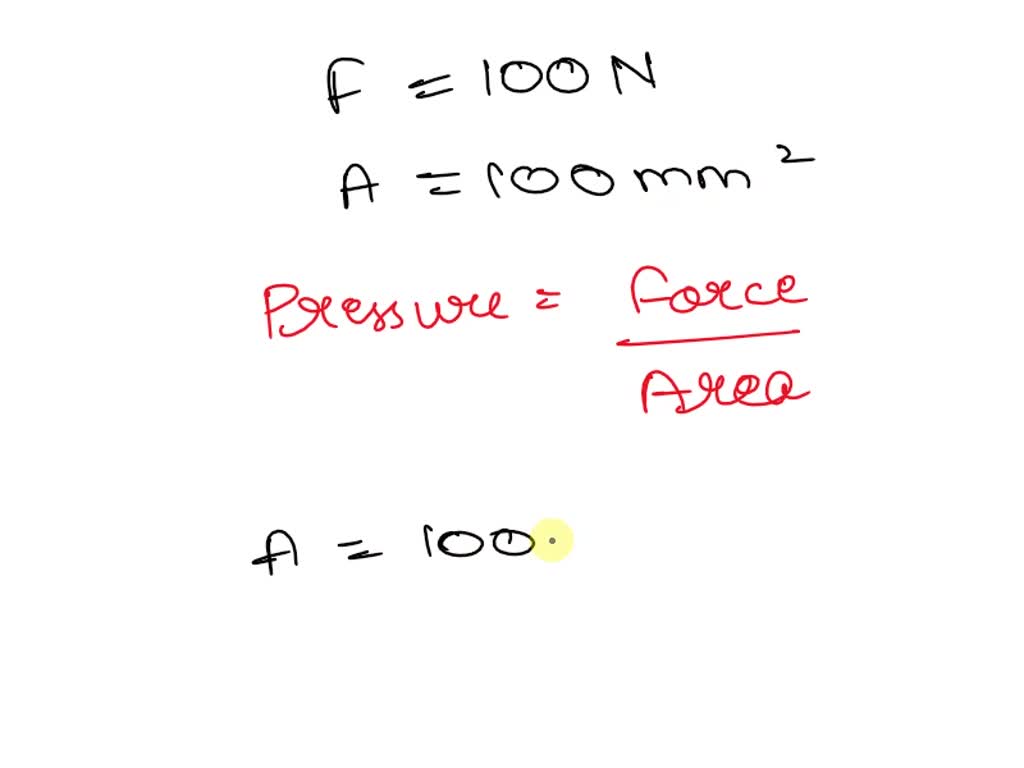 F = 100 N
A = 100 mm²
Pressure = Force
Area
A = 100